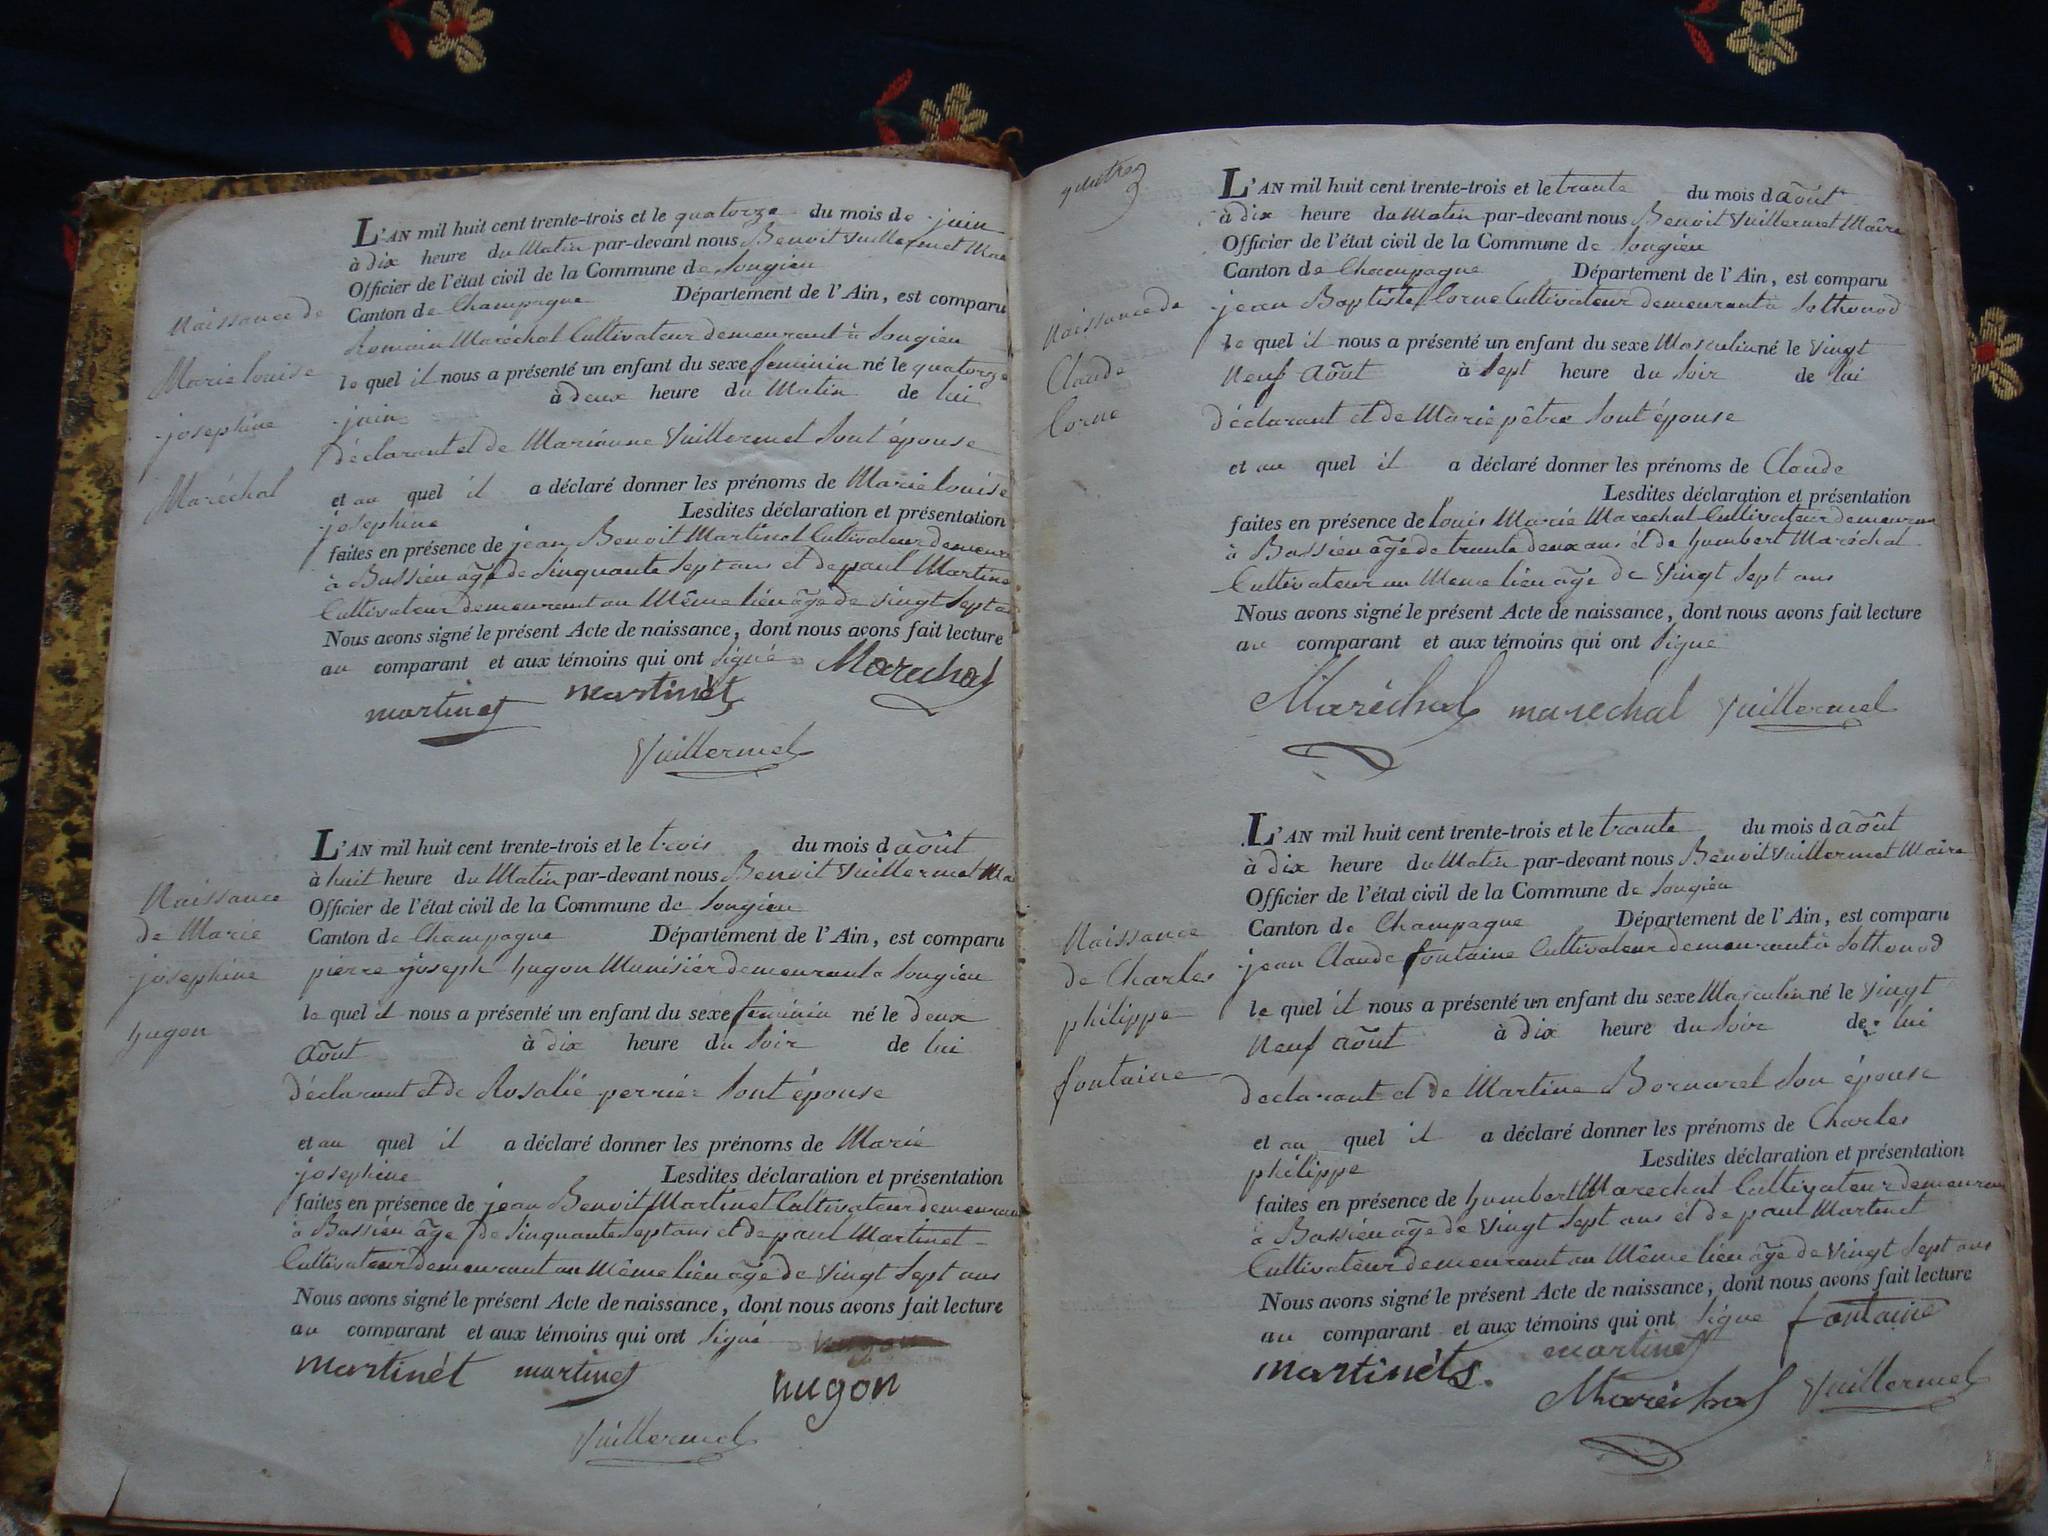 Naissance de
Marie louise
josephine
Maréchal
L'AN mil huit cent trente-trois et le quatorze du mois de juin
à dix heure du Matin par-devant nous Benoit Vuillermet Mai
Officier de l'état civil de la Commune de Songieu
Canton de Champagne Département de l'Ain, est comparu
Romain Maréchal Cultivateur demeurant à Songieu
le quel il nous a présenté un enfant du sexe feminin né le quatorze
juin à deux heure du Matin de lui
déclarant et de Marianne Vuillermet Sont épouse
et au quel il a déclaré donner les prénoms de Marie louise
josephine Lesdites déclaration et présentation
faites en présence de jean Benoit Martinet Cultivateur demeura
à Bassieu âgé de Sinquante Sept ans et de paul Martine
Cultivateur demeurant au Même lieu âgé de vingt Sept a
Nous avons signé le présent Acte de naissance, dont nous avons fait lecture
au comparant et aux témoins qui ont Signé Marechal
martinet martinèt
Vuillermet
Naissance
de Marie
josephine
hugon
L'AN mil huit cent trente-trois et le trois du mois d août
à huit heure du Matin par-devant nous Benoit Vuillermet Ma
Officier de l'état civil de la Commune de Songieu
Canton de Champagne Département de l'Ain, est comparu
pierre joseph hugon Munisiér demeurant a Songieu
le quel il nous a présenté un enfant du sexe feminin né le deux
Août à dix heure du Soir de lui
déclarant et de Rosalie perrier Sont épouse
et au quel il a déclaré donner les prénoms de Marie
josephine Lesdites déclaration et présentation
faites en présence de jean Benoit Martinet Cultivateur demeuran
à Bassieu âgé de Sinquante Sept ans et de paul Martinet
Cultivateur demeurant au Même lieu âgé de vingt Sept ans
Nous avons signé le présent Acte de naissance, dont nous avons fait lecture
au comparant et aux témoins qui ont Signé
martinèt martinet hugon
Vuillermet
Naissance de
Claude
Corne
L'AN mil huit cent trente-trois et le trante du mois d août
à dix heure du Matin par-devant nous Benoit Vuillermet Maire
Officier de l'état civil de la Commune de Songieu
Canton de Champagne Département de l'Ain, est comparu
jean Baptiste Corne Cultivateur demeurant à Sothonod
le quel il nous a présenté un enfant du sexe Masculin né le vingt
Neuf Août à Sept heure du Soir de lui
déclarant et de Marie pêtre Sont épouse
et au quel il a déclaré donner les prénoms de Claude
Lesdites déclaration et présentation
faites en présence de louis Marie Marechal Cultivateur demeuran
à Bassieu âgé de trante deux ans et de humbert Maréchal
Cultivateur au Meme lieu âgé de vingt Sept ans
Nous avons signé le présent Acte de naissance, dont nous avons fait lecture
au comparant et aux témoins qui ont Signe
Maréchal marechal Vuillermet
Naissance
de Charles
philippe
fontaine
L'AN mil huit cent trente-trois et le trante du mois d août
à dix heure du Matin par-devant nous Benoit Vuillermet Maire
Officier de l'état civil de la Commune de Songieu
Canton de Champagne Département de l'Ain, est comparu
jean Claude fontaine Cultivateur demeurant à Sothonod
le quel il nous a présenté un enfant du sexe Masculin né le vingt
Neuf août à dix heure du Soir de lui
declarant et de Martine Bornarel Son épouse
et au quel il a déclaré donner les prénoms de Charles
philippe Lesdites déclaration et présentation
faites en présence de humbert Marechal Cultivateur demeuran
à Bassieu âgé de vingt Sept ans et de paul Martinet
Cultivateur demeurant au Même lieu âgé de vingt Sept ans
Nous avons signé le présent Acte de naissance, dont nous avons fait lecture
au comparant et aux témoins qui ont Signe fontaine
martinéts. martinet
Maréchal Vuillermet